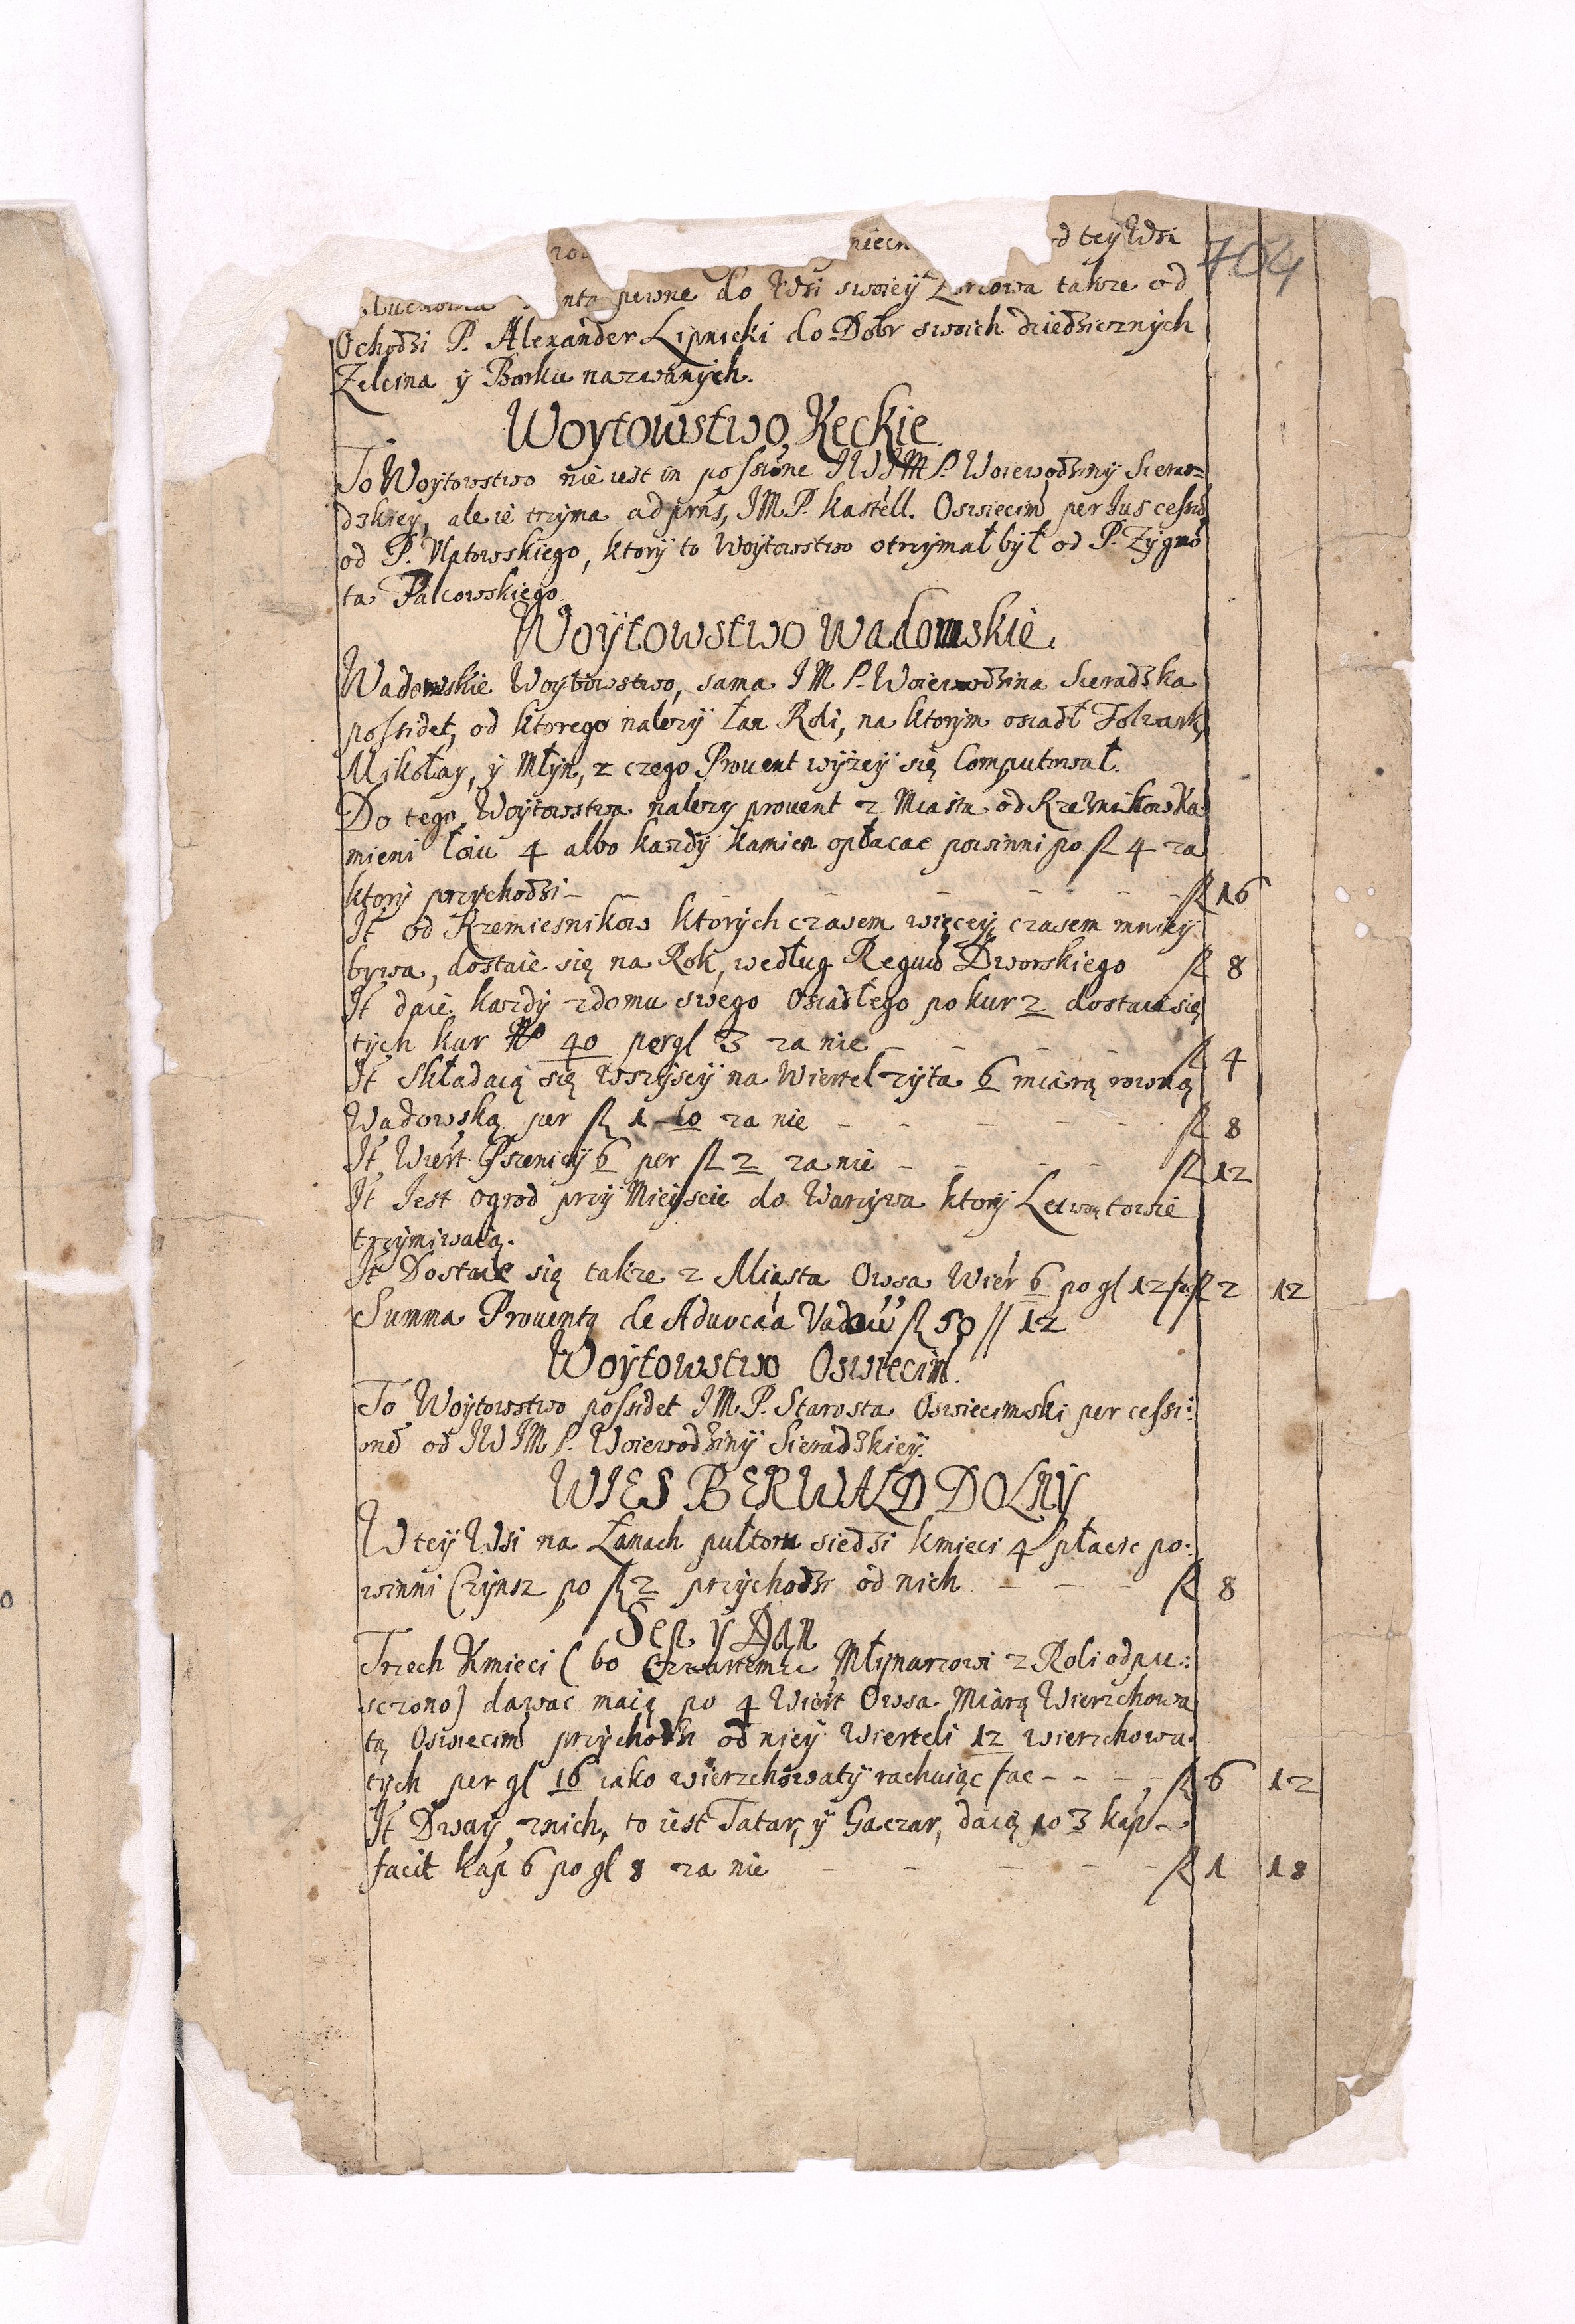 704
d tey Wsi
pewne do Wsi swoiey takze od
Ochodzi P. Alexander Lipnicki do Dobr swoich dziedzicznych
Zelcina ÿ Borku nazwanÿch.
Woytowstwo Kęckie
To Woÿtowstwo nie iest in possione JWJMP. Woiewodzinÿ Sierad=
dzkieÿ, ale ie trzÿma ad prns, JMP. Kastell. Oswiecim per Jus cessio
od P. Vlatowskiego, ktorÿ to Woÿtowstwo otrzÿmał bÿł od P. Zÿgmo
ta Palcowskiego.
Woÿtowstwo Wadowskie.
Wadowskie Woÿtowstwo, sama JMP. Woiewodzina Sieradzka
possidet, od ktorego nalezÿ Łan Roli, na ktorÿm osiadł Folwark,
Mikołaÿ, ÿ Młÿn, z czego Prouent wÿzeÿ się Computował.
Do tego Woÿtowstwa nalezÿ prouent z Miasta od Rzeznikow Ka
mieni Łoiu 4 albo kazdÿ kamien opłacac powinni po fl 4 za
ktorÿ przÿchodzi - - - - - - - fl 16
It od Rzemiesnikow ktorÿch czasem więceÿ czasem mnieÿ
bÿwa, dostaie się na Rok, według Reguło Dworskiego fl 8
It daie kazdÿ z domu swego Osiadłego po kur 2 dostaie się
tÿch kur No 40 per gl 3 za nie - - - - fl 4
It Składaią się wszÿscÿ na Wiertel zÿta 6 miarą rowną
Wadowską per fl 1-10 za nie - - - - - fl 8
It Wiert Pszenicÿ 6 per fl 2 za nie - - - - fl 12
It Jest ogrod przÿ Mieÿscie do Warzÿwa ktorÿ Letwętowie
trzÿmiwaią.
It Dostaie się takze z Miasta Owsa Wier 6 po gl 12 fac fl 2 12
Summa Prouentą de Aduocaa Vadow fl 50 // 12
Woÿtowstwo Oswiecim.
To Woÿtowstwo possidet JMP. Starosta Oswiecimski per cessi:
one od JWJMP. Woiewodzinÿ Sieradzkieÿ.
WIES BERWAŁD DOLNÿ
W teÿ Wsi na Łanach pułtoru siedzi kmieci 4 płacic po:
winni Czÿnsz po fl 2 przÿchodzi od nich - - - fl 8
Sep ÿ Dan
Trzech Kmieci (bo czwartemu Młÿnarzowi z Roli odpu:
sczono) dawac maią po 4 Wiert Owsa Miarą Wierzchowa
tą Oswiecim przÿchodzi od nieÿ Wierteli 12 wierzchowa
tÿch per gl 16 iako wierzchowatÿ rachuiąc fac - - - fl 6 12
It Dwaÿ z nich, to iest Tatar, ÿ Gaczar, daią po 3 kap -
facit kap 6 po gl 8 za nie - - - - - fl 1 18